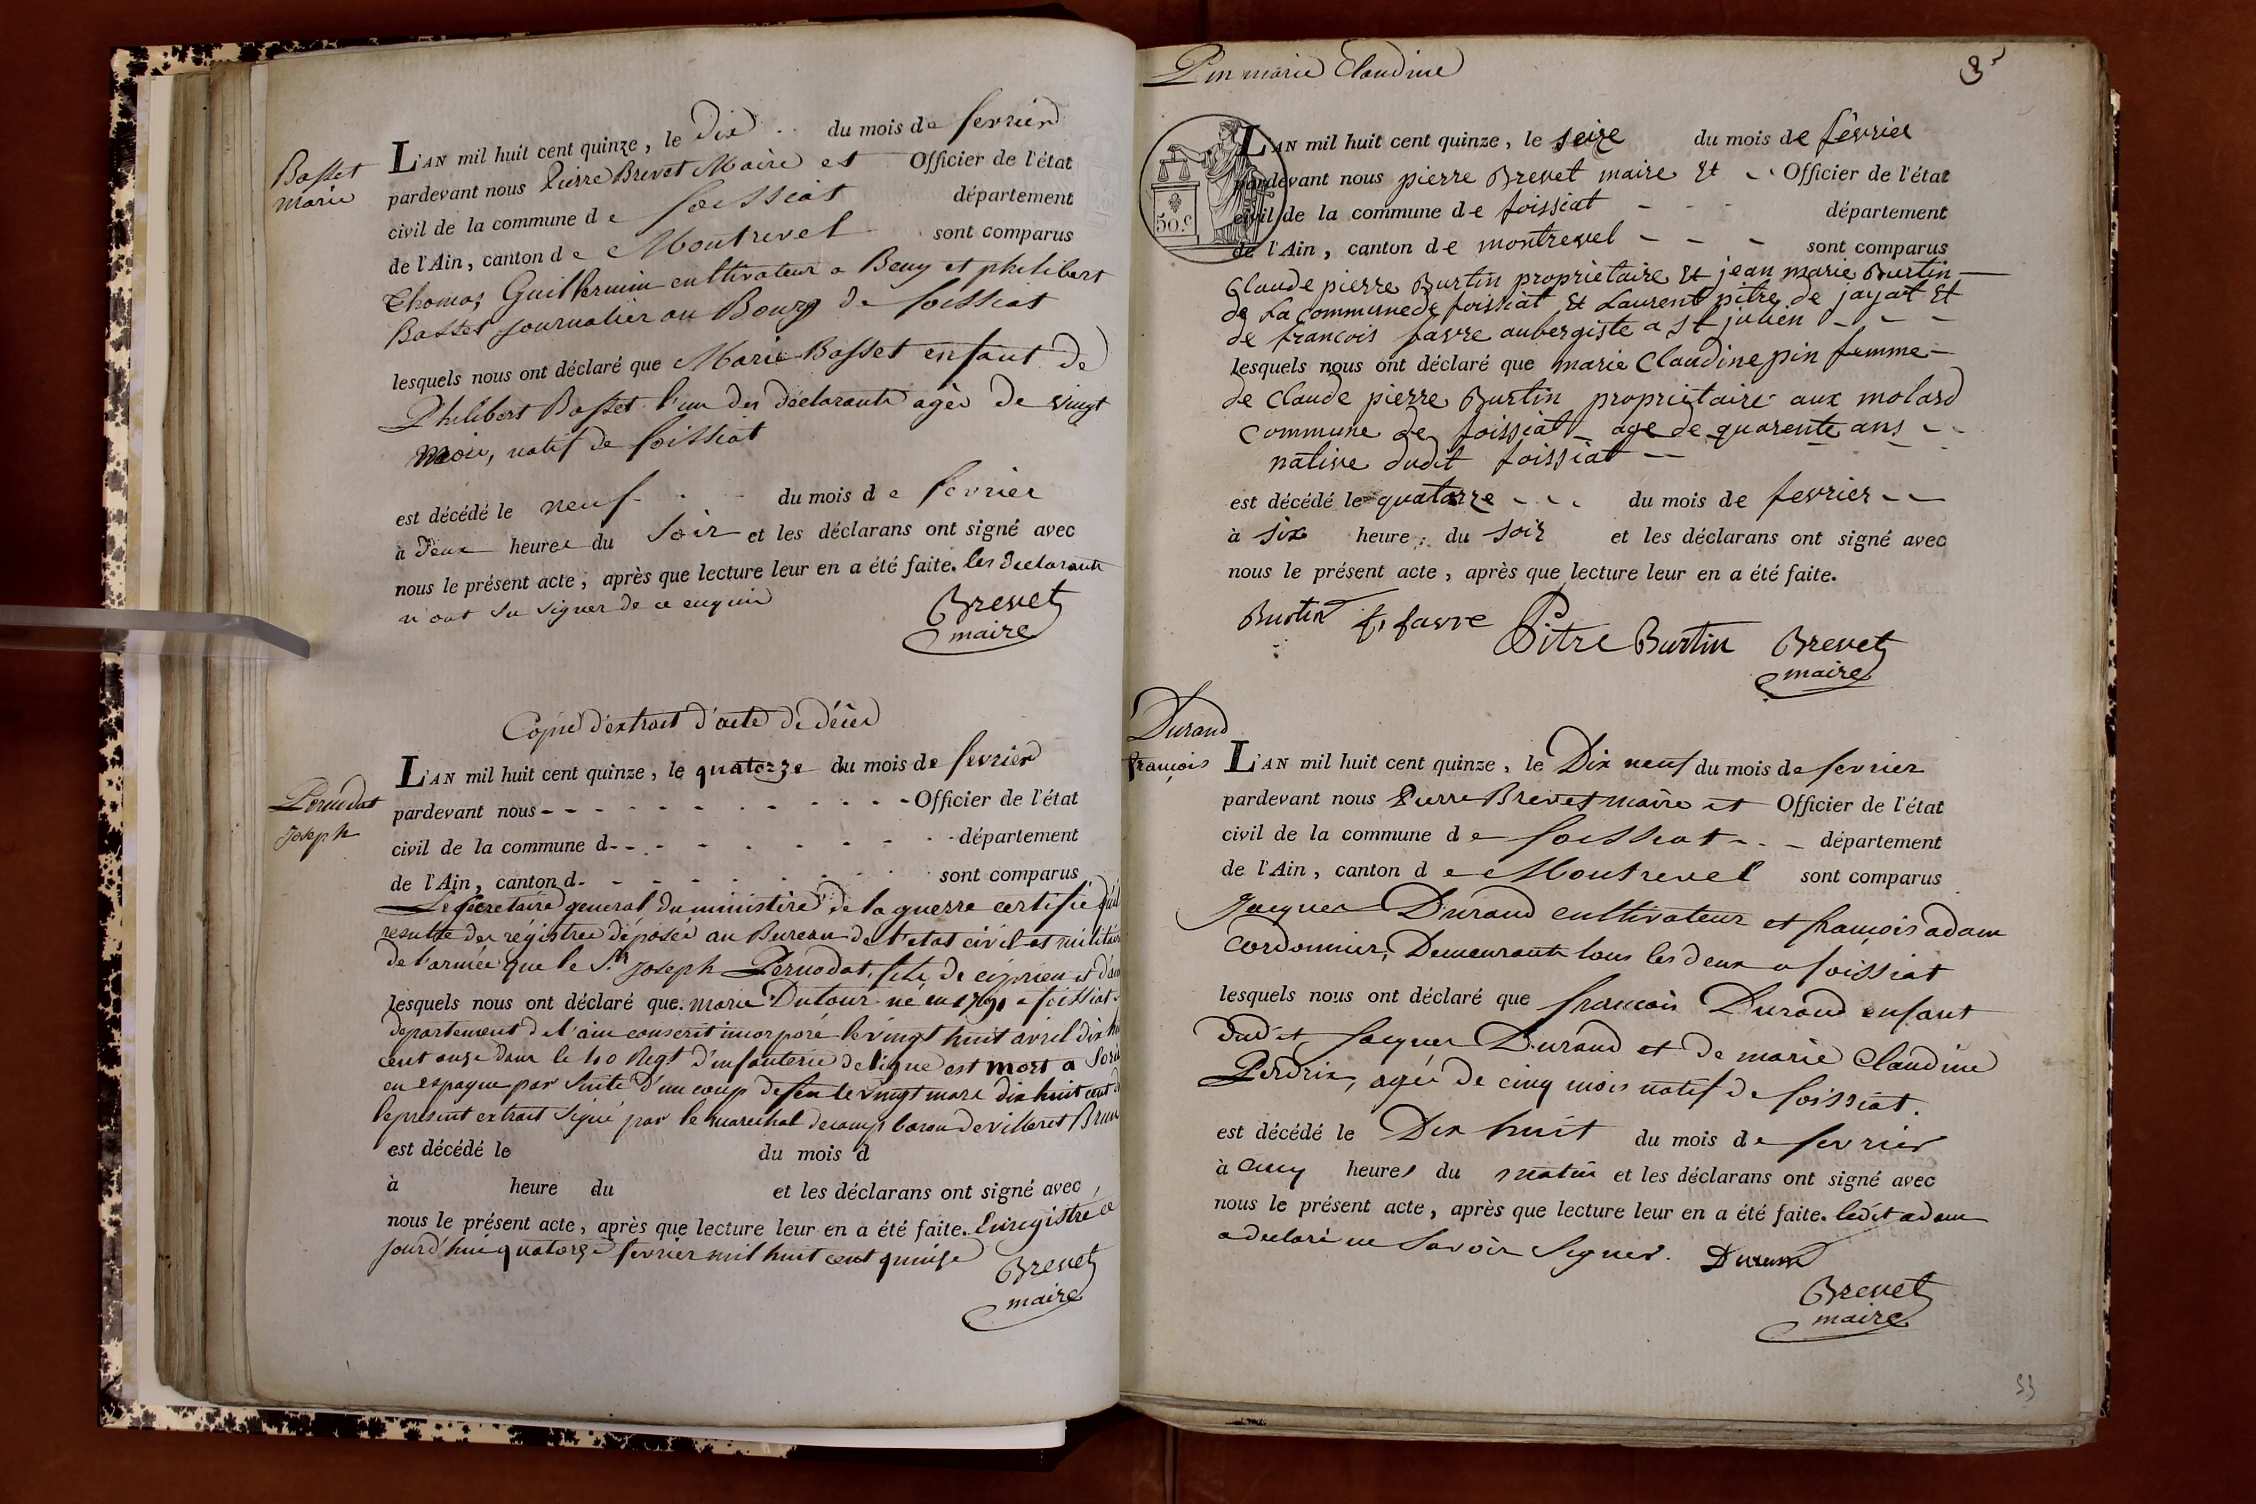 Basset
marie
L'AN mil huit cent quinze, le dix du mois de fevrier
pardevant nous Pierre Brevet Maire et Officier de l'état
civil de la commune de foissiat département
de l'Ain, canton de Montrevel sont comparus
Thomas Guillermin cultivateur a Beny et philibert
Basset journalier au Bourg de foissiat
lesquels nous ont déclaré que Marie Basset enfant de
Philibert Basset l'un des déclarants agée de vingt
mois, natif de foissiat
est décédé le neuf du mois de fevrier
à deux heures du soir et les déclarans ont signé avec
nous le présent acte, après que lecture leur en a été faite. les declarants
n'ont su signer de ce enquis
Brevet
maire
Copie d'extrait d'acte de décès
Pernodat
Joseph
L'AN mil huit cent quinze, le quatorze du mois de fevrier
pardevant nous - - - - - - - - - - Officier de l'état
civil de la commune d - - - - - - - - - département
de l'Ain, canton d - - - - - - - sont comparus
Le Secretaire general du ministère de la guerre certifie qu'il
resulte des régistres déposés au Bureau de l'etat civil et militaire
de l'armée que le Sr. Joseph Pernodat, fils de ciprien et
lesquels nous ont déclaré que. marie Dutour né en 1790 a foissiat
departement de l'ain conscrit incorporé le vingt huit avril dix huit
cent onze dans le 40 Regt d'infanterie de ligne est mort a
en espagne par suite d'un coup de feu le vingt mars dix huit cent
le present extrait signé par le marechal de camp baron de villeret
est décédé le du mois d
à heure du et les déclarans ont signé avec
nous le présent acte, après que lecture leur en a été faite. Enregistré ce
jourd'hui quatorze fevrier mil huit cent quinze
Brevet
maire
Pin marie Claudine
3
50.c
L'AN mil huit cent quinze, le seize du mois de février
pardevant nous pierre Brevet maire Et - - Officier de l'état
civil de la commune de foissiat - - - département
de l'Ain, canton de montrevel - - - sont comparus
Claude pierre Burtin proprietaire Et jean marie Burtin -
de La commune de foissiat Et Laurent pitre de jayat Et
de francois favre aubergiste a St julien - - -
lesquels nous ont déclaré que marie Claudine pin femme -
de Claude pierre Burtin proprietaire aux molard
Commune de foissiat - age de quarente ans - -
native dudit foissiat -
est décédé le quatorze - - - du mois de fevrier - -
à six heure; du soir et les déclarans ont signé avec
nous le présent acte, après que lecture leur en a été faite.
Burtin f, favre Pitre Burtin Brevet
maire
Durand
françois
L'AN mil huit cent quinze, le Dix neuf du mois de fevrier
pardevant nous Pierre Brevet maire et Officier de l'état
civil de la commune de foissiat - - - département
de l'Ain, canton de Montrevel sont comparus
Jacques Durand cultivateur et françois adam
Cordonnier, Demeurants tous les deux a foissiat
lesquels nous ont déclaré que françois Durand enfant
dudit Jacques Durand et de marie Claudine
Perdrix, agée de cinq mois natif de foissiat.
est décédé le Dix huit du mois de fevrier
à cinq heures du matin et les déclarans ont signé avec
nous le présent acte, après que lecture leur en a été faite. ledit adam
a declaré ne savoir signer. Durand
Brevet
maire
53